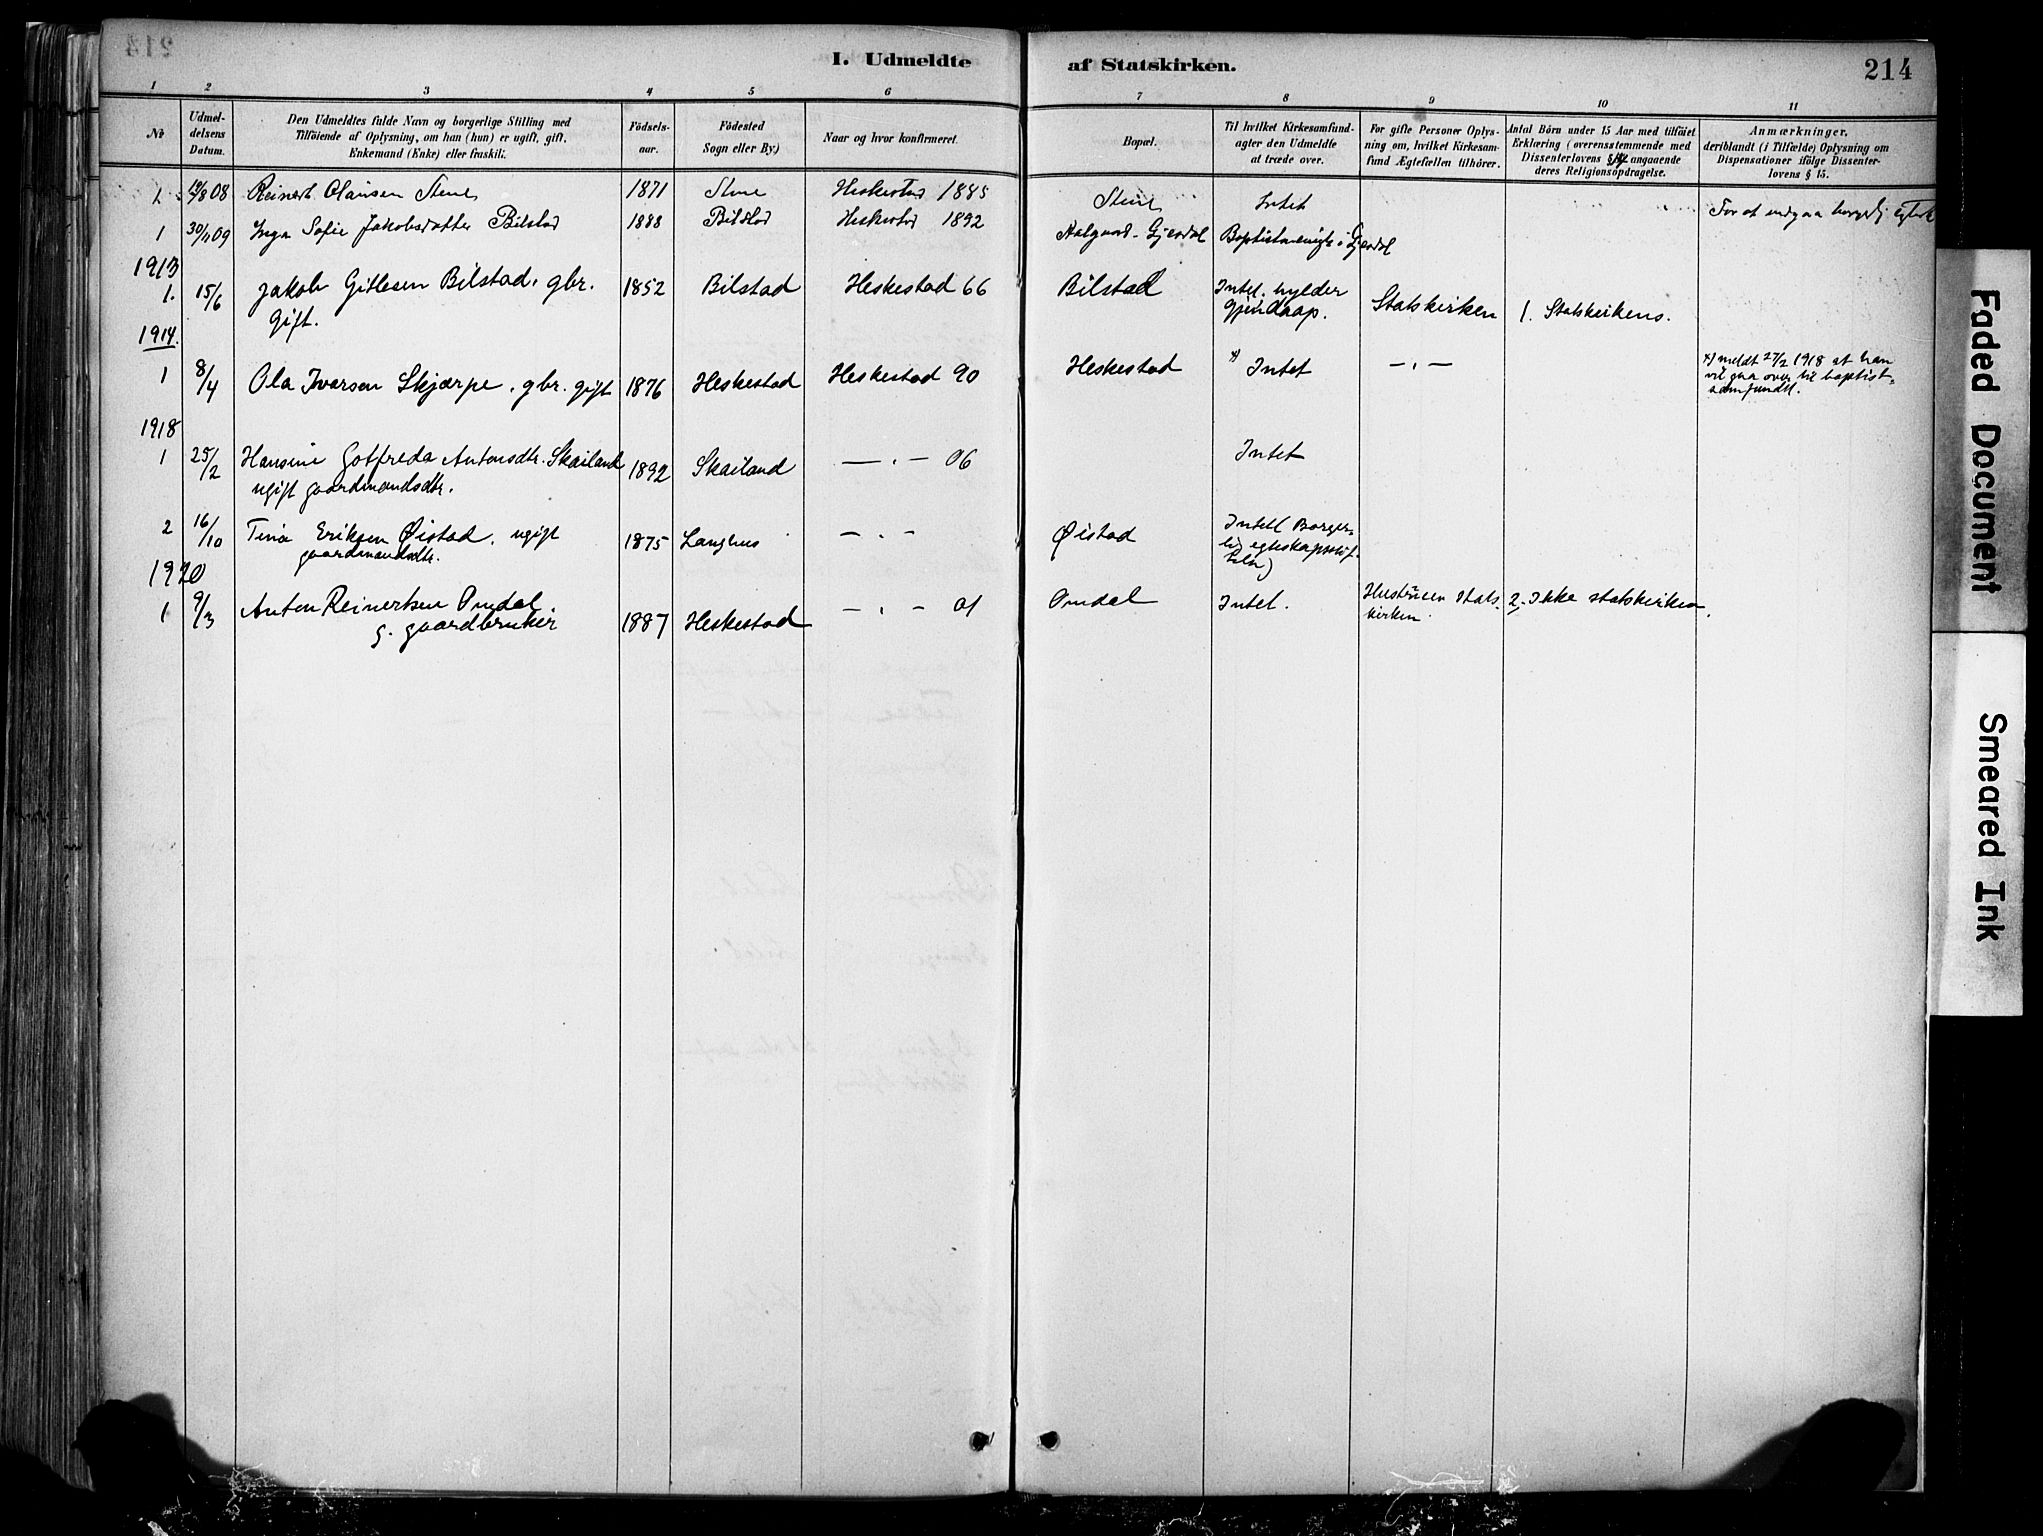 214
I. Udmeldte af Statskirken.
214
1 2 3 4 5 6 7 8 9 10 11
No
Udmel-
delsens
Datum.
Den Udmeldtes fulde Navn og borgerlige Stilling med
Tilföiende af Oplysning, om han (hun) er ugift, gift,
Enkemand (Enke) eller fraskilt.
Födsels-
aar.
Födested
Sogn eller By.)
Naar og hvor konfirmeret.
Bopæl.
Til hvilket Kirkesamfund-
agter den Udmeldte
at træde over.
For gifte Personer Oplys-
ning om, hvilket Kirkesam-
fund Ægtefællen tilhörer.
Antal Börn under 15 Aar med tilföiet
Erklæring (overensstemmende med
Dissenterlovens § angaaende
deres Religionsopdragelse.
Anmærkninger,
deriblandt (i Tilfælde) Oplysning om
Dispensationer ifölge Dissenter-
lovens § 15.
1. 08 Reinert Olausen Stene 1871 Stene Heskestad 1885 Stene Intet For at indgaa borgerlig
1 30/11 09 Inga Sofie Jakobsdatter Bilstad 1888 Bilstad Heskestad 1892 Aalgaard - Gjesdal Baptistmenigh. i Gjesdal
1913
1. 15/6 Jakob Gitlesen Bilstad, gbr.
gift.
1852 Bilstad Heskestad 66 Bilstad Intet. hylder
gjendaap.
Statskirken 1. Statskirkens.
1914.
1 8/4 Ola Ivarsen Skjærpe, gbr. gift 1876 Heskestad Heskestad 90 Heskestad x) Intet — " — x) meldt 27/2 1918 at han
vil gaa over til baptist-
samfundet.
1918
1 25/2 Hansine Gotfreda Antonsdtr. Skailand
ugift gaardmandsdtr.
1892 Skailand — " — 06 Intet
2 16/10 Tina Eriksen Øistad, ugift
gaardmandsdtr.
1875 Langhus — " — Øistad Intet (Borger-
lig egteskapsstif-
telse)
1920
1 9/3 Anton Reinertsen Omdal.
g. gaardbruker
1887 Heskestad — " — 01 Omdal Intet. Hustruen Stats-
kirken.
2. Ikke statskirken.
Faded Document
Smeared Ink